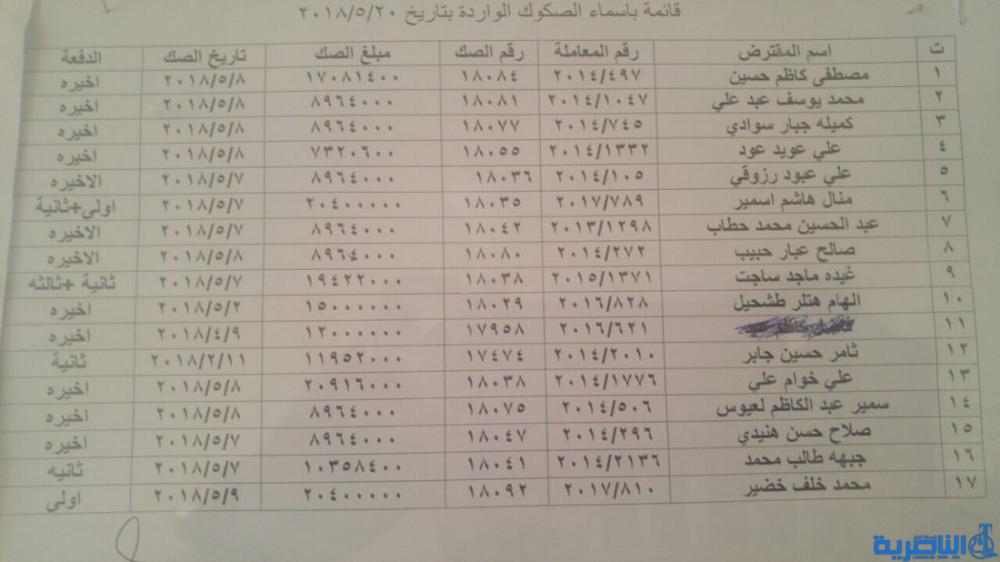 قائمة باسماء الصكوك الواردة بتاريخ ٢٠١٨/٥/٢٠
ت اسم المقترض رقم المعاملة رقم الصك مبلغ الصك تاريخ الصك الدفعة
١ مصطفى كاظم حسين ٢٠١٤/٤٩٧ ١٨٠٨٤ ١٧٠٨١٤٠٠ ٢٠١٨/٥/٨ اخيره
٢ محمد يوسف عبد علي ٢٠١٤/١٠٤٧ ١٨٠٨١ ٨٩٦٤٠٠٠ ٢٠١٨/٥/٨ اخيره
٣ كميله جبار سوادي ٢٠١٤/٧٤٥ ١٨٠٧٧ ٨٩٦٤٠٠٠ ٢٠١٨/٥/٨ اخيره
٤ علي عويد عود ٢٠١٤/١٣٣٢ ١٨٠٥٥ ٧٣٢٠٦٠٠ ٢٠١٨/٥/٨ اخيره
٥ علي عبود رزوقي ٢٠١٤/١٠٥ ١٨٠٣٦ ٨٩٦٤٠٠٠ ٢٠١٨/٥/٧ الاخيره
٦ منال هاشم اسمير ٢٠١٧/٧٨٩ ١٨٠٣٥ ٢٠٤٠٠٠٠٠ ٢٠١٨/٥/٧ اولى+ثانية
٧ عبد الحسين محمد حطاب ٢٠١٣/١٢٩٨ ١٨٠٤٢ ٨٩٦٤٠٠٠ ٢٠١٨/٥/٧ الاخيره
٨ صالح عبار حبيب ٢٠١٤/٢٧٢ ١٨٠٨٠ ٨٩٦٤٠٠٠ ٢٠١٨/٥/٨ الاخيره
٩ غيده ماجد ساجت ٢٠١٥/١٣٧١ ١٨٠٣٨ ١٩٤٢٢٠٠٠ ٢٠١٨/٥/٧ ثانية +ثالثه
١٠ الهام هتلر طشحيل ٢٠١٦/٨٢٨ ١٨٠٢٩ ١٥٠٠٠٠٠٠ ٢٠١٨/٥/٢ اخيره
١١ ٢٠١٦/٦٢١ ١٧٩٥٨ ١٢٠٠٠٠٠٠ ٢٠١٨/٤/٩ اخيره
١٢ ثامر حسين جابر ٢٠١٤/٢٠١٠ ١٧٤٧٤ ١١٩٥٢٠٠٠ ٢٠١٨/٢/١١ ثانية
١٣ علي خوام علي ٢٠١٤/١٧٧٦ ١٨٠٣٨ ٢٠٩١٦٠٠٠ ٢٠١٨/٥/٨ اخيره
١٤ سمير عبد الكاظم لعيوس ٢٠١٤/٥٠٦ ١٨٠٧٥ ٨٩٦٤٠٠٠ ٢٠١٨/٥/٨ اخيره
١٥ صلاح حسن هنيدي ٢٠١٤/٢٩٦ ١٨٠٤٧ ٨٩٦٤٠٠٠ ٢٠١٨/٥/٧ اخيره
١٦ جبهه طالب محمد ٢٠١٤/٢١٣٦ ١٨٠٤١ ١٠٣٥٨٤٠٠ ٢٠١٨/٥/٧ ثانيه
١٧ محمد خلف خضير ٢٠١٧/٨١٠ ١٨٠٩٢ ٢٠٤٠٠٠٠٠ ٢٠١٨/٥/٩ اولى
الناصرية